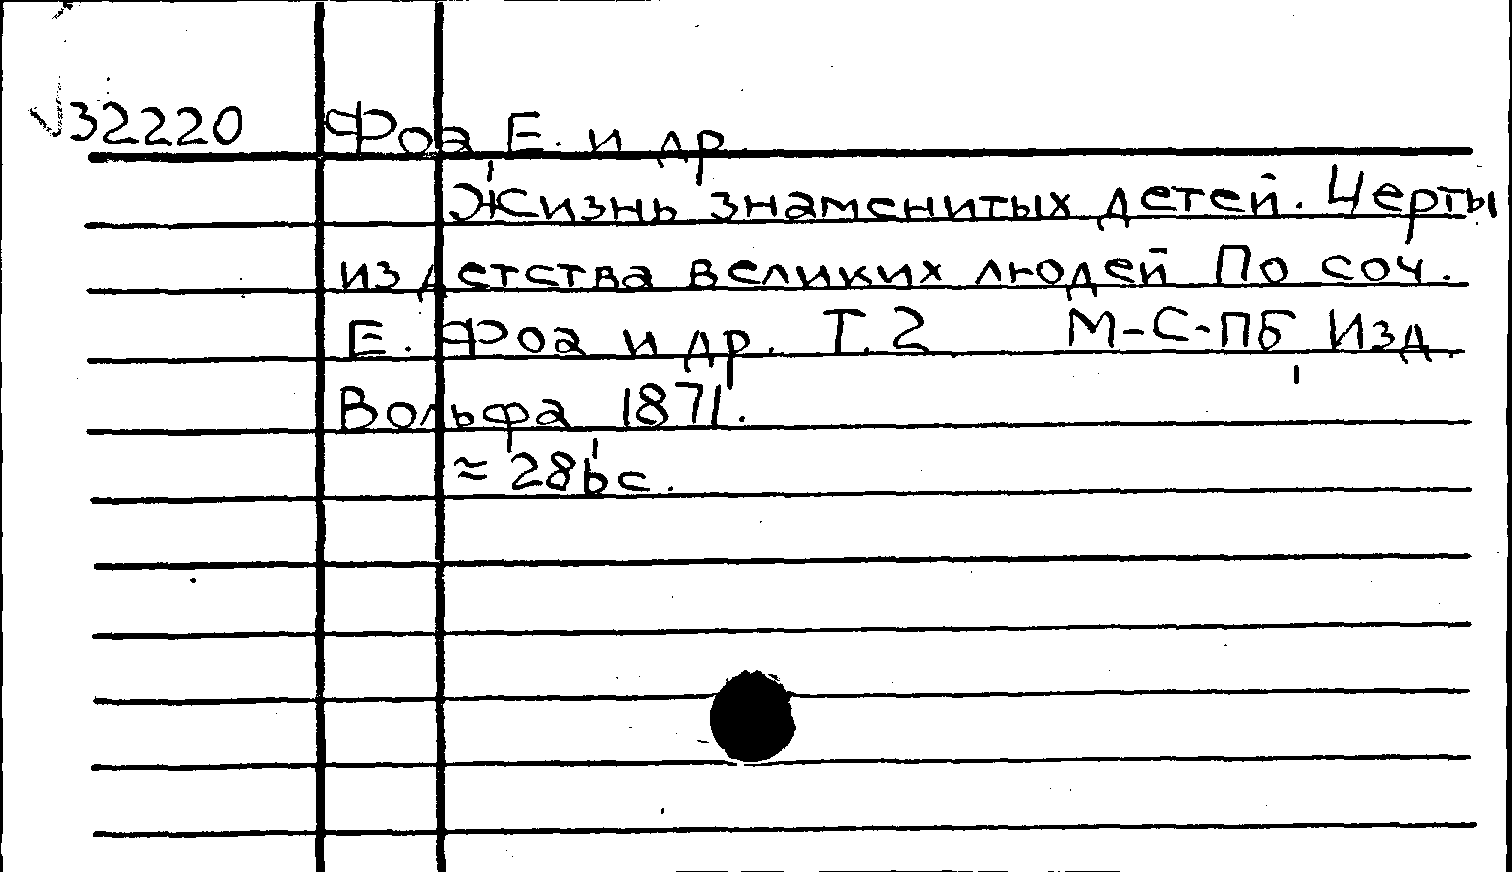 √32220 Фоа, Е. и др.
Жизнь знаменитых детей. Черты
из детства великих людей По соч.
Е. Фоа и др. Т. 2 М-С-ПБ, Изд.
Вольфа 1871.
≈ 286 с.